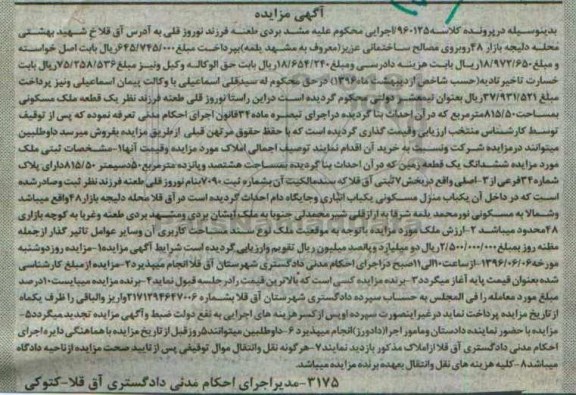 آگهی مزایده
بدینوسیله در پرونده کلاسه ۹۶۰۱۲۵/اجرایی محکوم علیه مشد بردی طعنه فرزند نوروز قلی به آدرس آق قلا خ شهید بهشتی
محله دلیجه بازار ۴۸ روبروی مصالح ساختمانی عزیز(معروف به مشهد یلمه)بپرداخت مبلغ ۶۴۵/۷۴۵/۰۰۰ریال بابت اصل خواسته
و مبلغ ۱۸/۹۷۲/۶۵۰ریال بابت هزینه دادرسی ومبلغ ۱۸/۶۵۴/۲۴۰ریال بابت حق الوکاله وکیل ونیز مبلغ ۷۵/۲۵۸/۵۳۶ریال بابت
خسارت تاخیر تادیه(حسب شاخص اردیبهشت ماه ۱۳۹۶) در حق محکوم له سیدقلی اسماعیلی با وکالت پیمان اسماعیلی ونیز پرداخت
مبلغ ۳۷/۹۳۱/۵۲۱ریال بعنوان نیمعشر دولتی محکوم گردیده است دراین راستا نوروز قلی طعنه فرزند نظر یک قطعه ملک مسکونی
بمساحت ۸۱۵/۵۰مترمربع که در آن احداث بنا گردیده دراجرای تبصره ماده ۳۴قانون اجرای احکام مدنی تعرفه نموده که پس از توقیف
توسط کارشناس منتخب ارزیابی وقیمت گذاری گردیده است که با حفظ حقوق مرتهن قبلی ازطریق مزایده بفروش میرسد داوطلبین
میتوانند درمزایده شرکت ونسبت به خرید آن اقدام نمایند توصیف اجمالی املاک مورد مزایده وقیمت آنها۱-مشخصات ثبتی ملک
مورد مزایده ششدانگ یک قطعه زمین که درآن احداث بنا گردیده بمساحت هشتصد وپانزده مترمربع ۵۰دسیمتر ۸۱۵/۵۰دارای پلاک
شماره ۳۴فرعی از ۳-اصلی واقع دربخش ۷ثبتی آق قلا که سندمالکیت آن بشماره ثبت ۷۰۹۰بنام نوروز قلی طعنه فرزند نظر ثبت وصادرشده
است که در داخل آن یکباب منزل مسکونی یکباب انباری وجایگاه دام احداث گردیده است درآق قلا محله دلیجه بازار ۴۸واقع میباشد
وشمالا به مسکونی نورمحمد یلمه شرقا به ارازقلی شیرمحمدلی جنوبا به ملک ایشان بردی ومشهد بردی طعنه وغربا به کوچه بازاری
۴۸محدود میباشد ۲-ارزش ملک مورد مزایده باتوجه به موقعیت ملک نوع سند مساحت کاربری آن وسایر عوامل تاثیر گذار ازجمله
مظنه روز بمبلغ ۲/۵۰۰/۰۰۰/۰۰۰ریال دو میلیارد وپانصد میلیون ریال تقویم وارزیابی گردیده است شرایط آگهی مزایده۱-مزایده روزدوشنبه
مورخه ۱۳۹۶/۰۶/۰۶-ازساعت ۱۰الی ۱۱صبح دراجرای احکام مدنی دادگستری شهرستان آق قلا انجام میپذیرد ۲-مزایده از مبلغ کارشناسی
شده بعنوان قیمت پایه آغاز میگردد ۳-برنده مزایده کسی است که بالاترین قیمت رادرجلسه قبول نماید ۴-برنده مزایده میبایست ۱۰درصد
مبلغ مورد معامله را فی المجلس به حساب سپرده دادگستری شهرستان آق قلا بشماره ۲۱۷۱۲۹۴۶۴۷۰۰۶واریز والباقی را ظرف یکماه
از تاریخ مزایده پرداخت نماید درغیر اینصورت سپرده اوپس ازکسر هزینه های اجرایی به نفع دولت ضبط وآگهی مزایده تجدید میگردد ۵-
مزایده با حضور نماینده دادستان ومامور اجرا(دادورز)انجام میپذیرد ۶-داوطلبین میتوانند ۵روز قبل از تاریخ مزایده با هماهنگی دایره اجرای
احکام مدنی دادگستری آق قلا ازاملاک مذکور بازدید نمایند ۷-هرگونه نقل وانتقال موال توقیفی پس از تایید صحت مزایده ازناحیه دادگاه
میباشد ۸-کلیه هزینه های نقل وانتقال بعهده برنده مزایده میباشد.
۳۱۷۵-مدیراجرای احکام مدنی دادگستری آق قلا-کتوکی